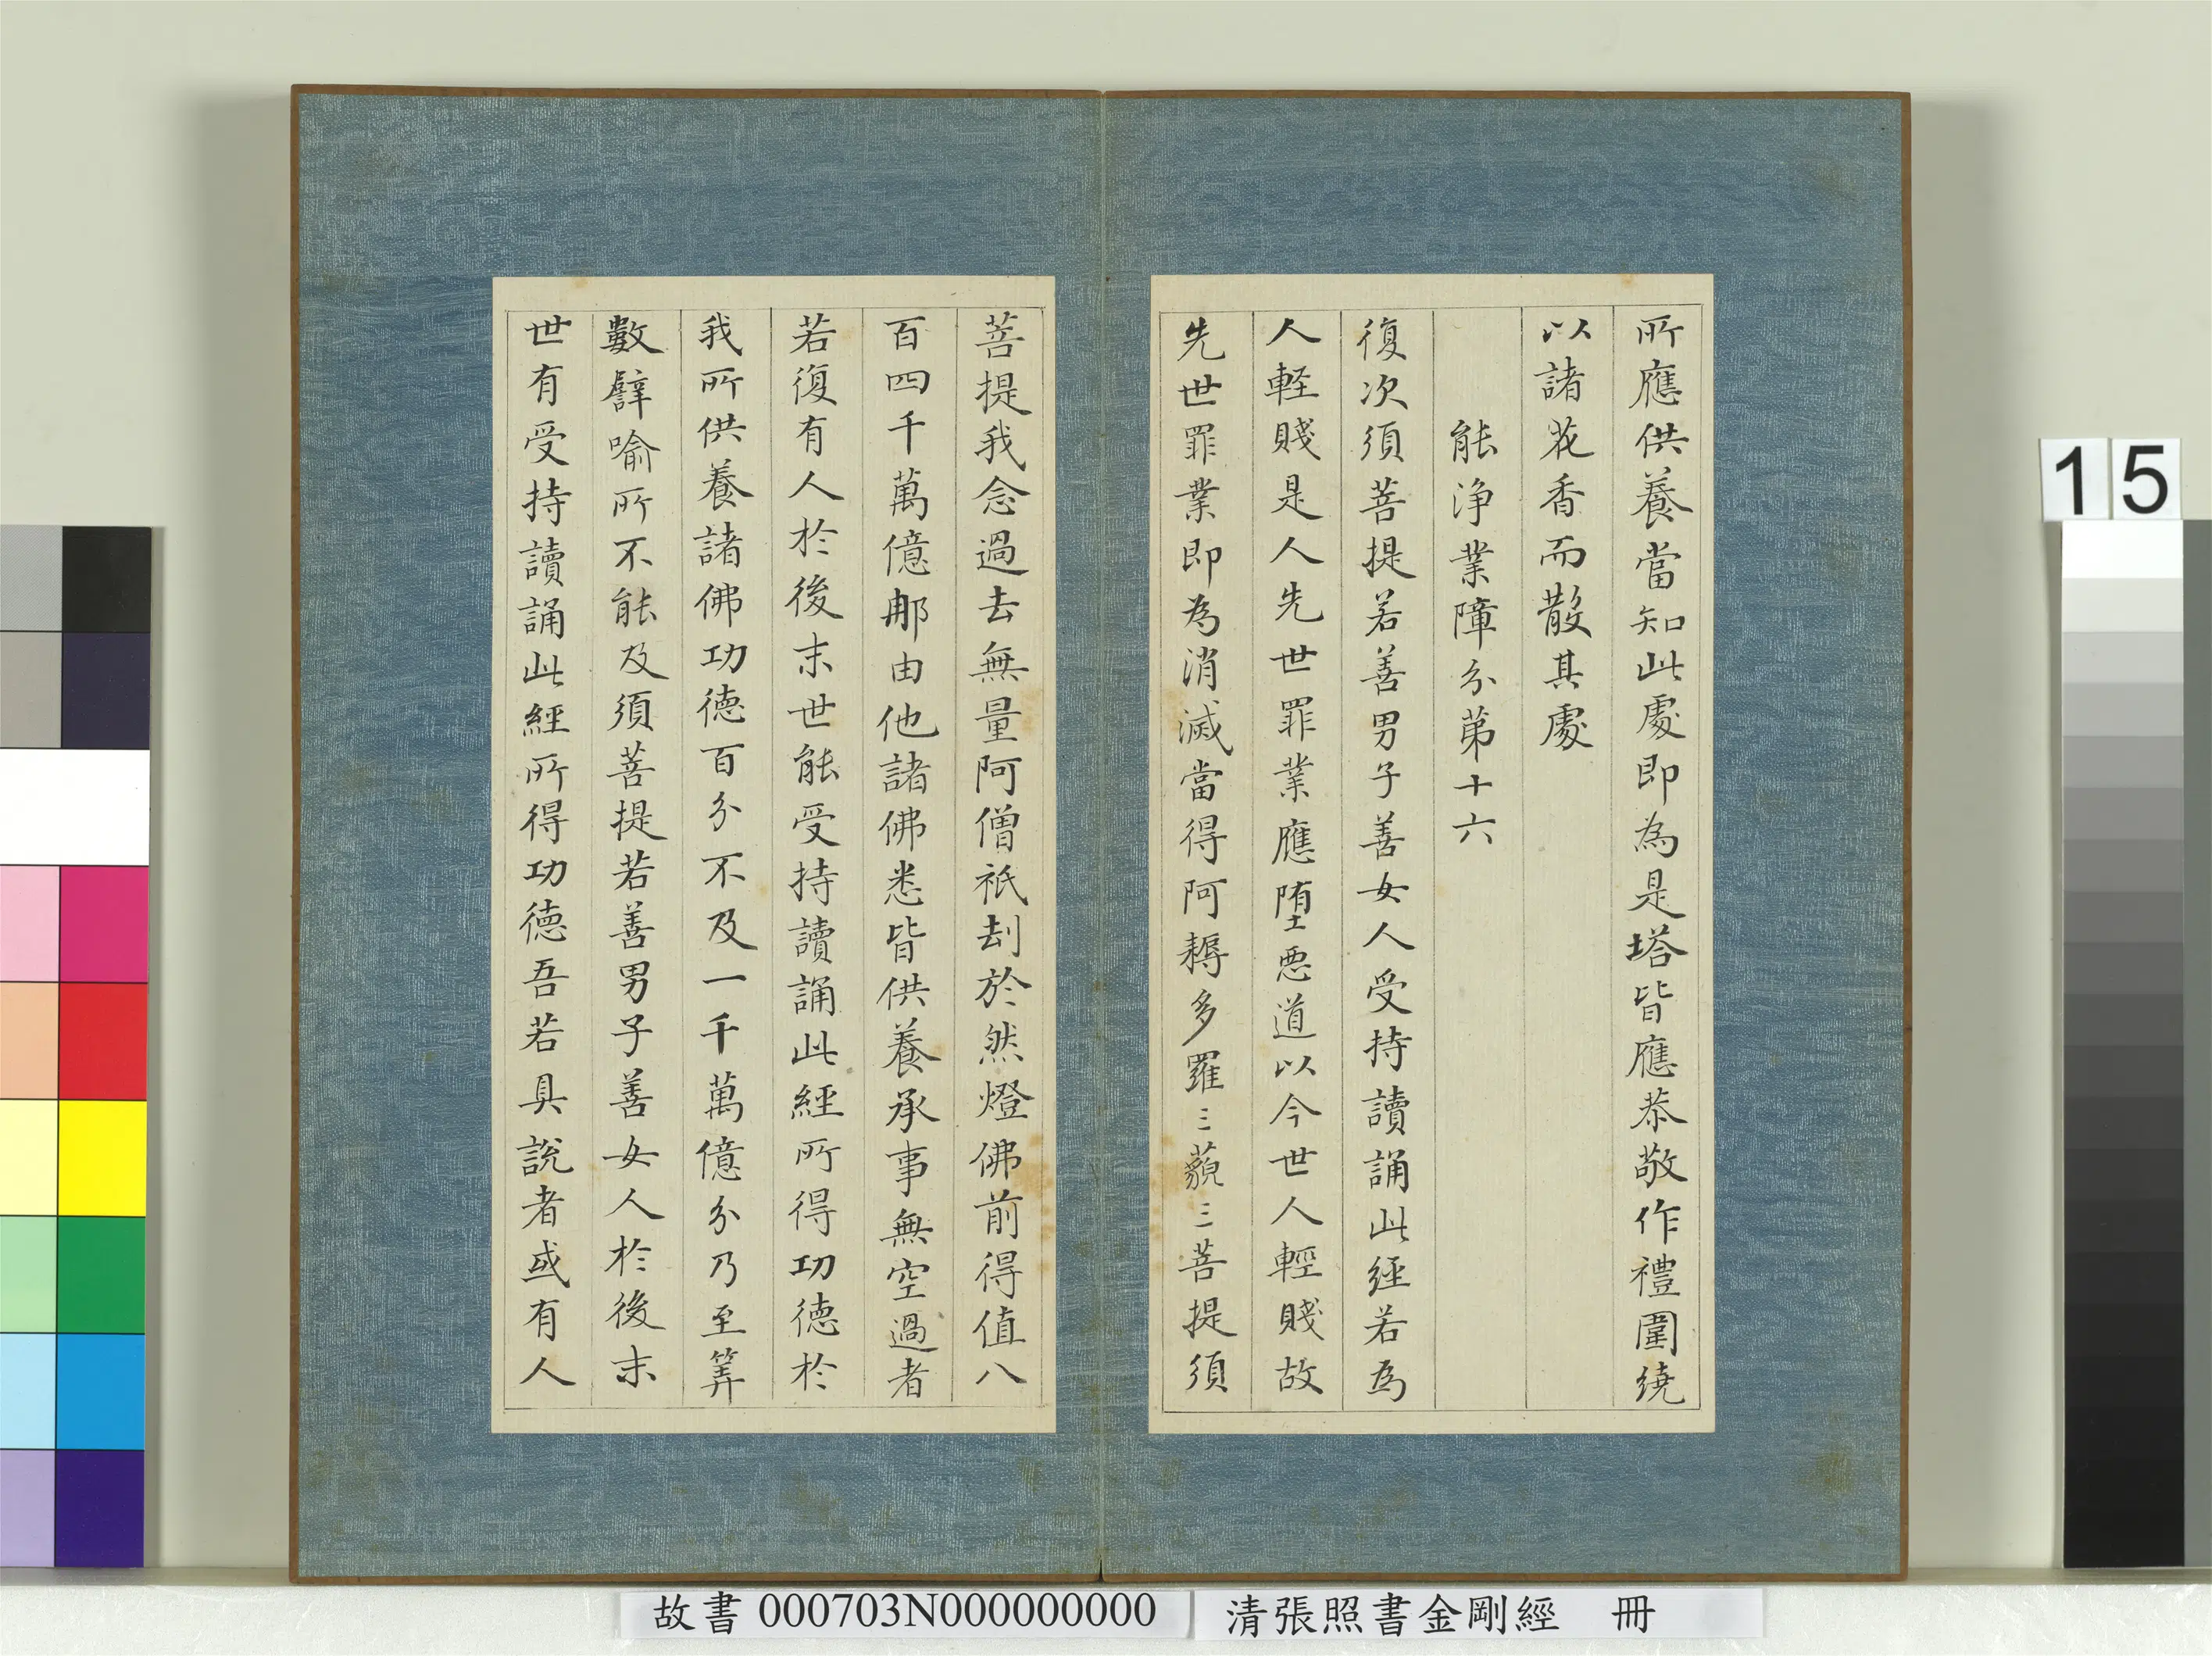 所應供養當知此處即為是塔皆應恭敬作禮圍繞
以諸花香而散其處
能淨業障分第十六
復次須菩提若善男子善女人受持讀誦此經若為
人輕賤是人先世罪業應堕惡道以今世人輕賤故
先世罪業即為消滅當得阿耨多羅三藐三菩提須
菩提我念過去無量阿僧祇刧於然燈佛前得值八
百四千萬億那由他諸佛悉皆供養承事無空過者
若復有人於後末世能受持讀誦此經所得功德於
我所供養諸佛功德百分不及一千萬億分乃至筭
數譬喻所不能及須菩提若善男子善女人於後末
世有受持讀誦此經所得功德吾若具說者或有人
15
故書 000703N000000000 清張照書金剛經 冊